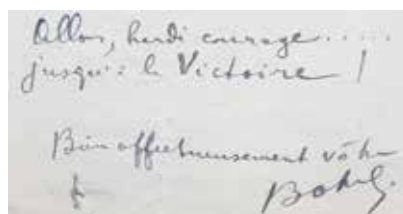 Allons, hardi courage.....
jusqu'à la Victoire !
Bien affectueusement vôtre
Botrel.